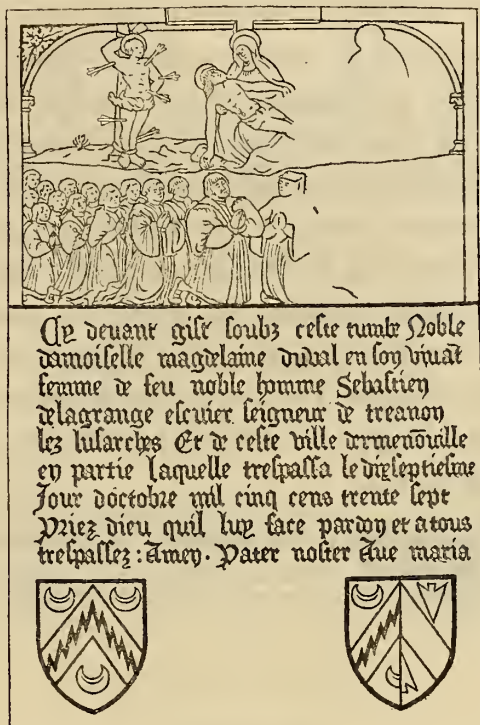 Cy devant gist soubz ceste tumbe Noble
damoiselle magdelaine duval en son vivāt
femme de feu noble homme Sebastien
delagrange escuier seigneur de treanon
lez lusarches Et de ceste ville dermenōville
en partie laquelle trespassa le dixseptiesme
Jour doctobre mil cinq cens trente sept
Priez dieu quil luy face pardon et a tous
trespassez : Amen · Pater noster Ave maria